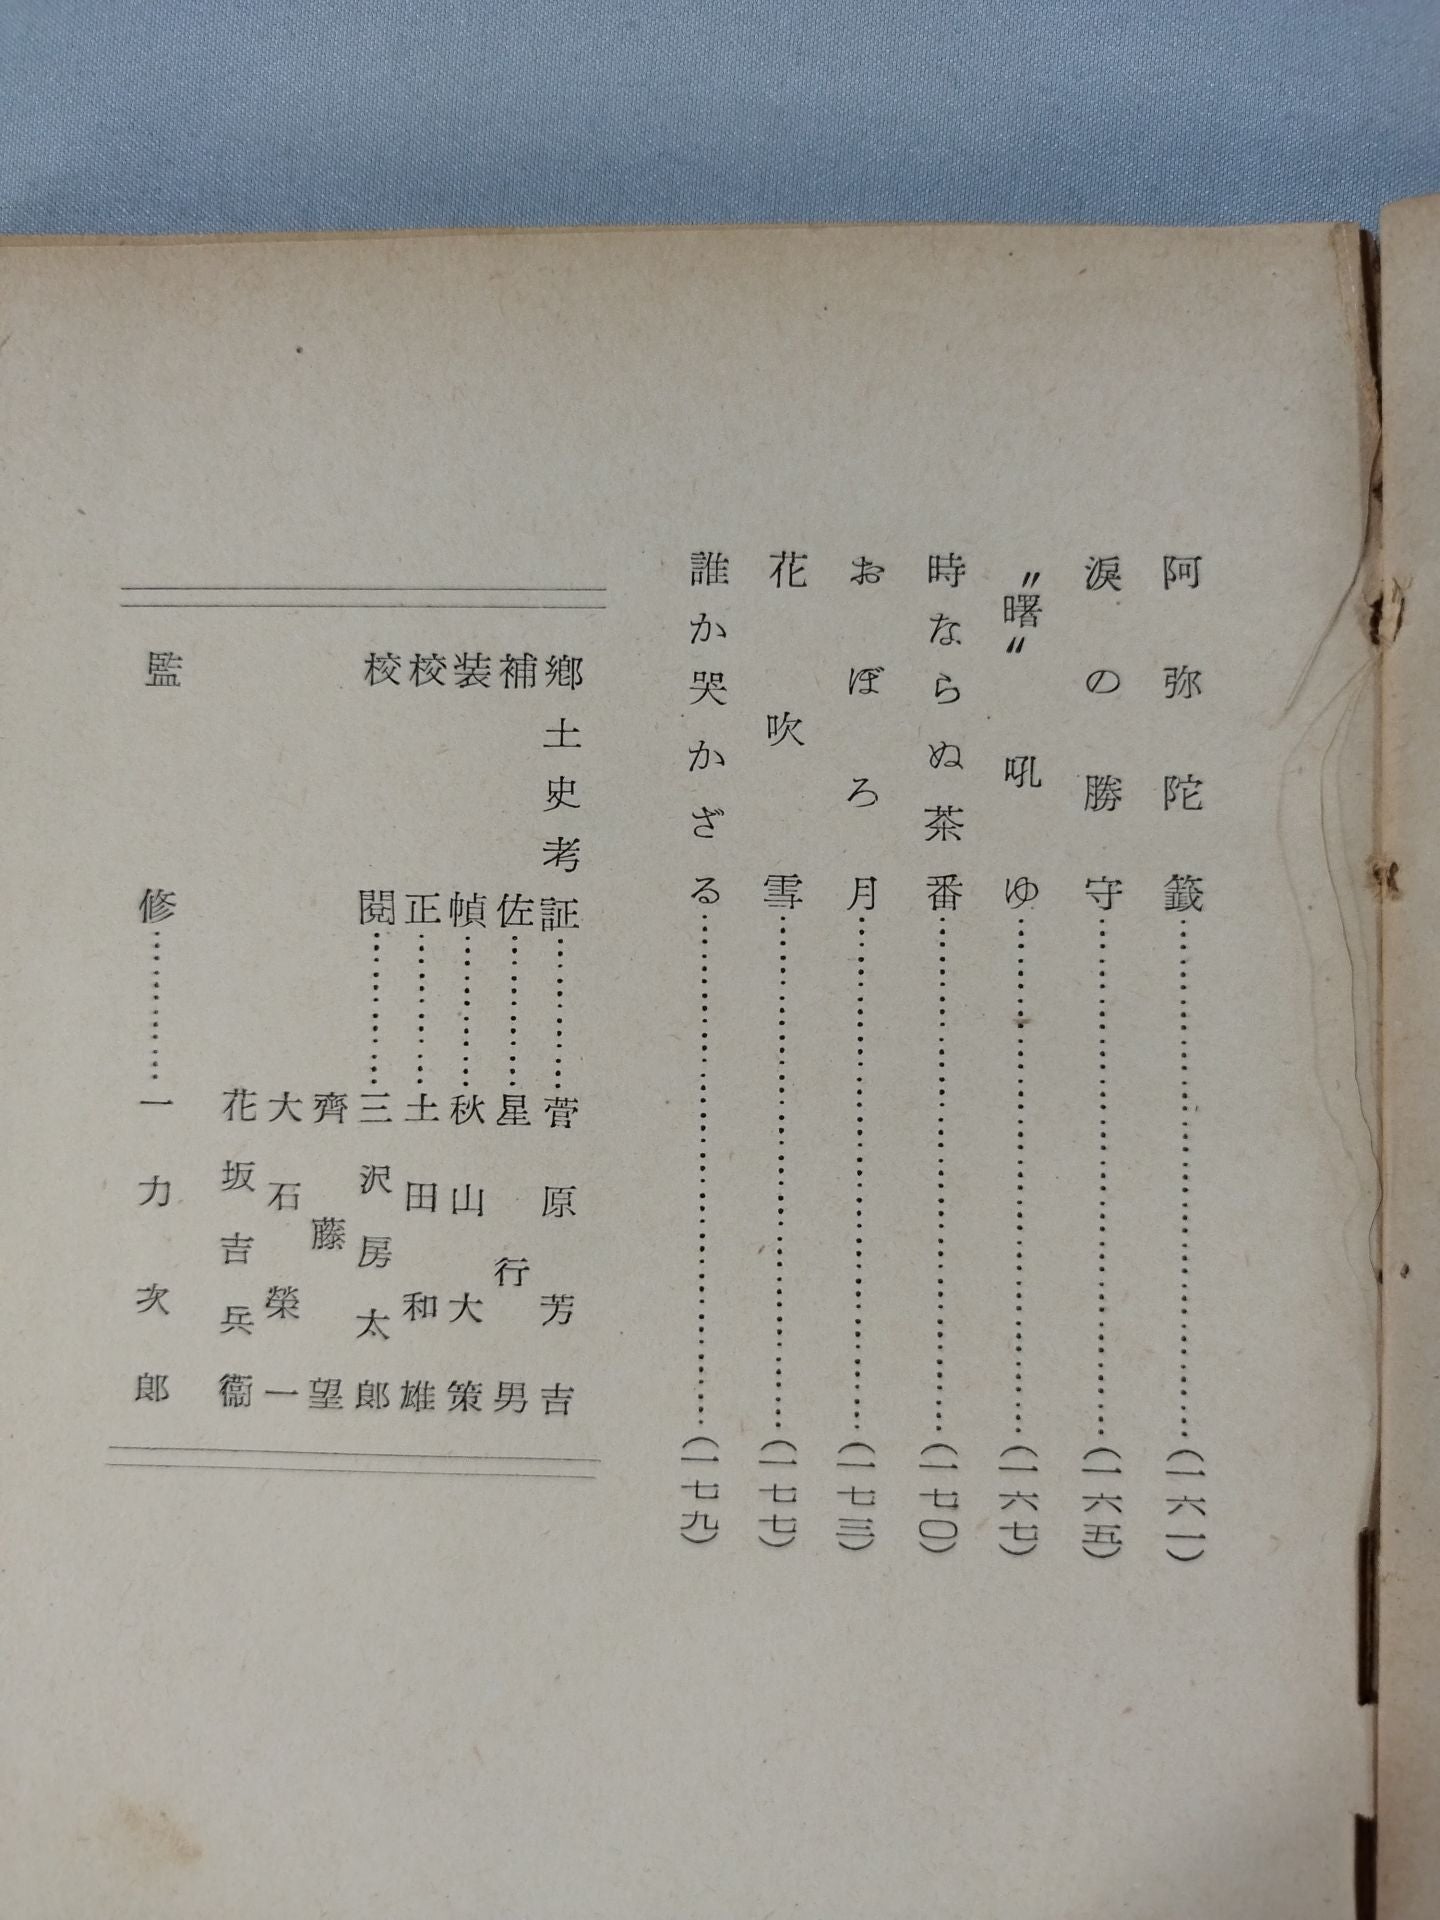 阿弥陀籤……………………(一六一)
涙の勝守……………………(一六五)
〝曙〟吼ゆ……………………(一六七)
時ならぬ茶番……………………(一七〇)
おぼろ月……………………(一七三)
花吹雪……………………(一七七)
誰か哭かざる……………………(一七九)
郷土史考証…………菅原芳吉
補佐…………星行男
装幀…………秋山大策
校正…………土田和雄
校閲…………三沢房太郎
齊藤望
大石榮一
花坂吉兵衞
監修…………一力次郎